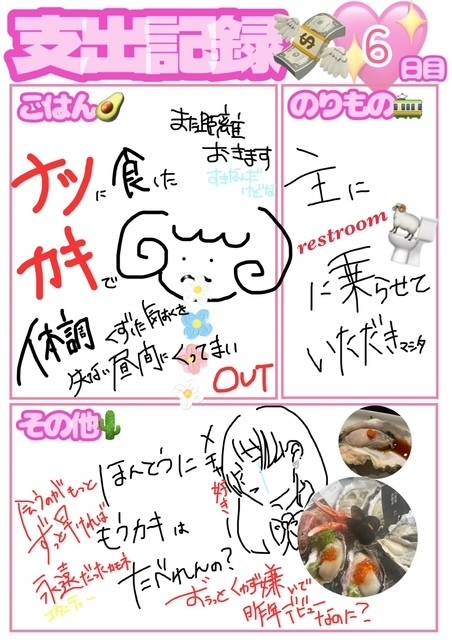 支出記録
6
日目
ごはん
また距離
おきます
すきなんだ
けどな
ナツに食した
カキで
体調くずした気はくを
失ない昼間にくってまい
OUT
のりもの
主に
restroom
に乗らせて
いただきマシタ
その他
ほんとうに
もうカキは
たべれんの?
好き
会うのがもっと
ずっと
永遠だったかもネ
エタニティー
ずうっとくわず嫌いで
昨年デビューなのに?